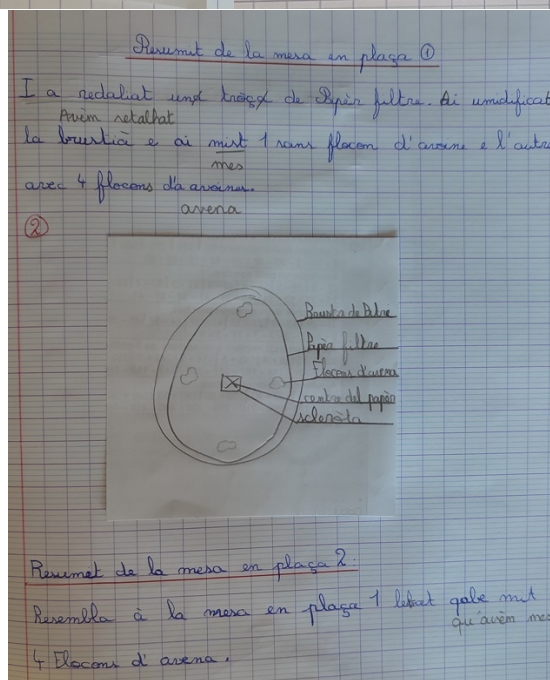 Resumit de la mesa en plaça ①
I a redaliat und tròç de Papèr filtre. Ai umidificat
Avèm retalhat
la brustià e ai mist 1 sans flocon d'avoine e l'autre
mes
avec 4 flocons d'a avoines.
avena
②
Bousta de Petri
Papèr filtre
Flocons d'avena
centre del papèr
scleròta
Resumet de la mesa en plaça 2.
Resembla à la mesa en plaça 1
qu'avèm mes
4 Flocons d'avena.